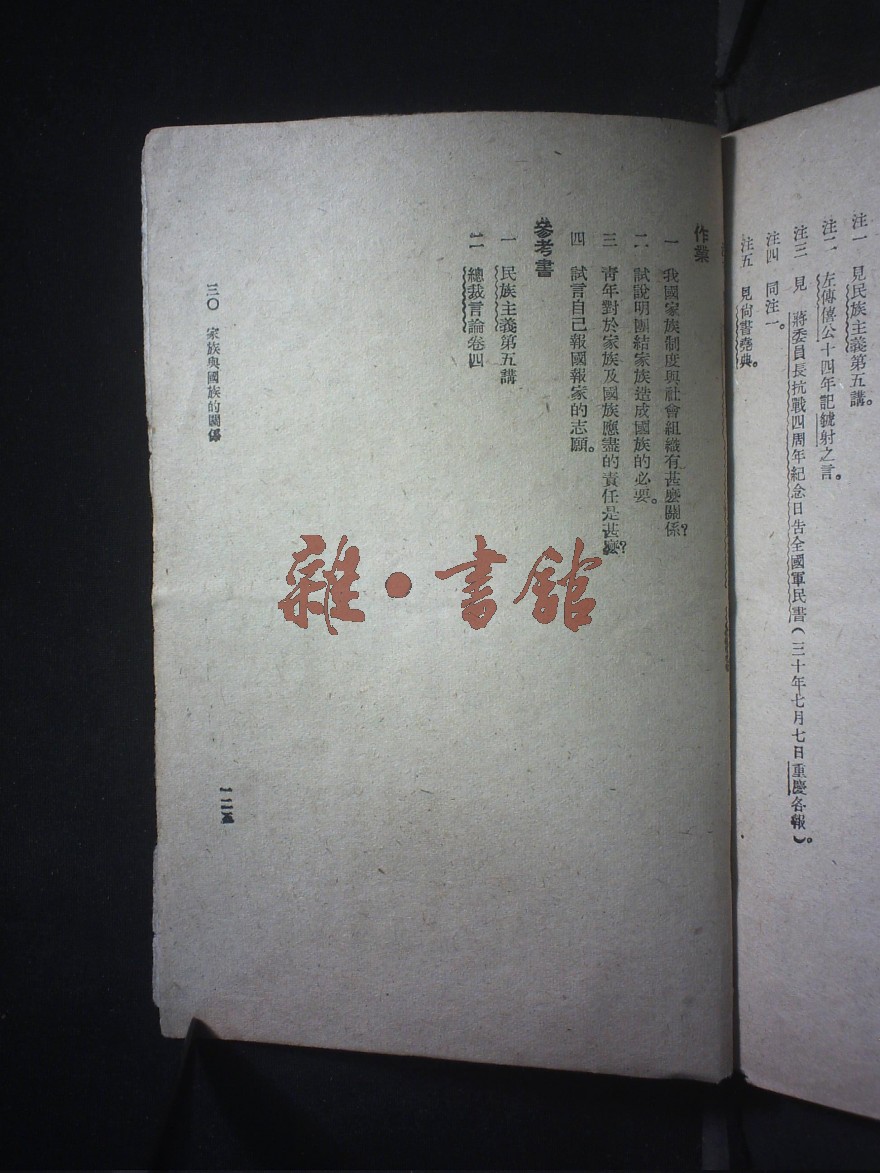 注一　見民族主義第五講。
注二　左傳僖公十四年記虢射之言。
注三　見　蔣委員長抗戰四周年紀念日告全國軍民書（三十年七月七日重慶各報）。
注四　同注一。
注五　見尚書堯典。
作業
一　我國家族制度與社會組織有甚麽關係？
二　試說明團結家族造成國族的必要。
三　青年對於家族及國族應盡的責任是甚麽？
四　試言自己報國報家的志願。
參考書
一　民族主義第五講
二　總裁言論卷四
三〇　家族與國族的關係
雜・書館